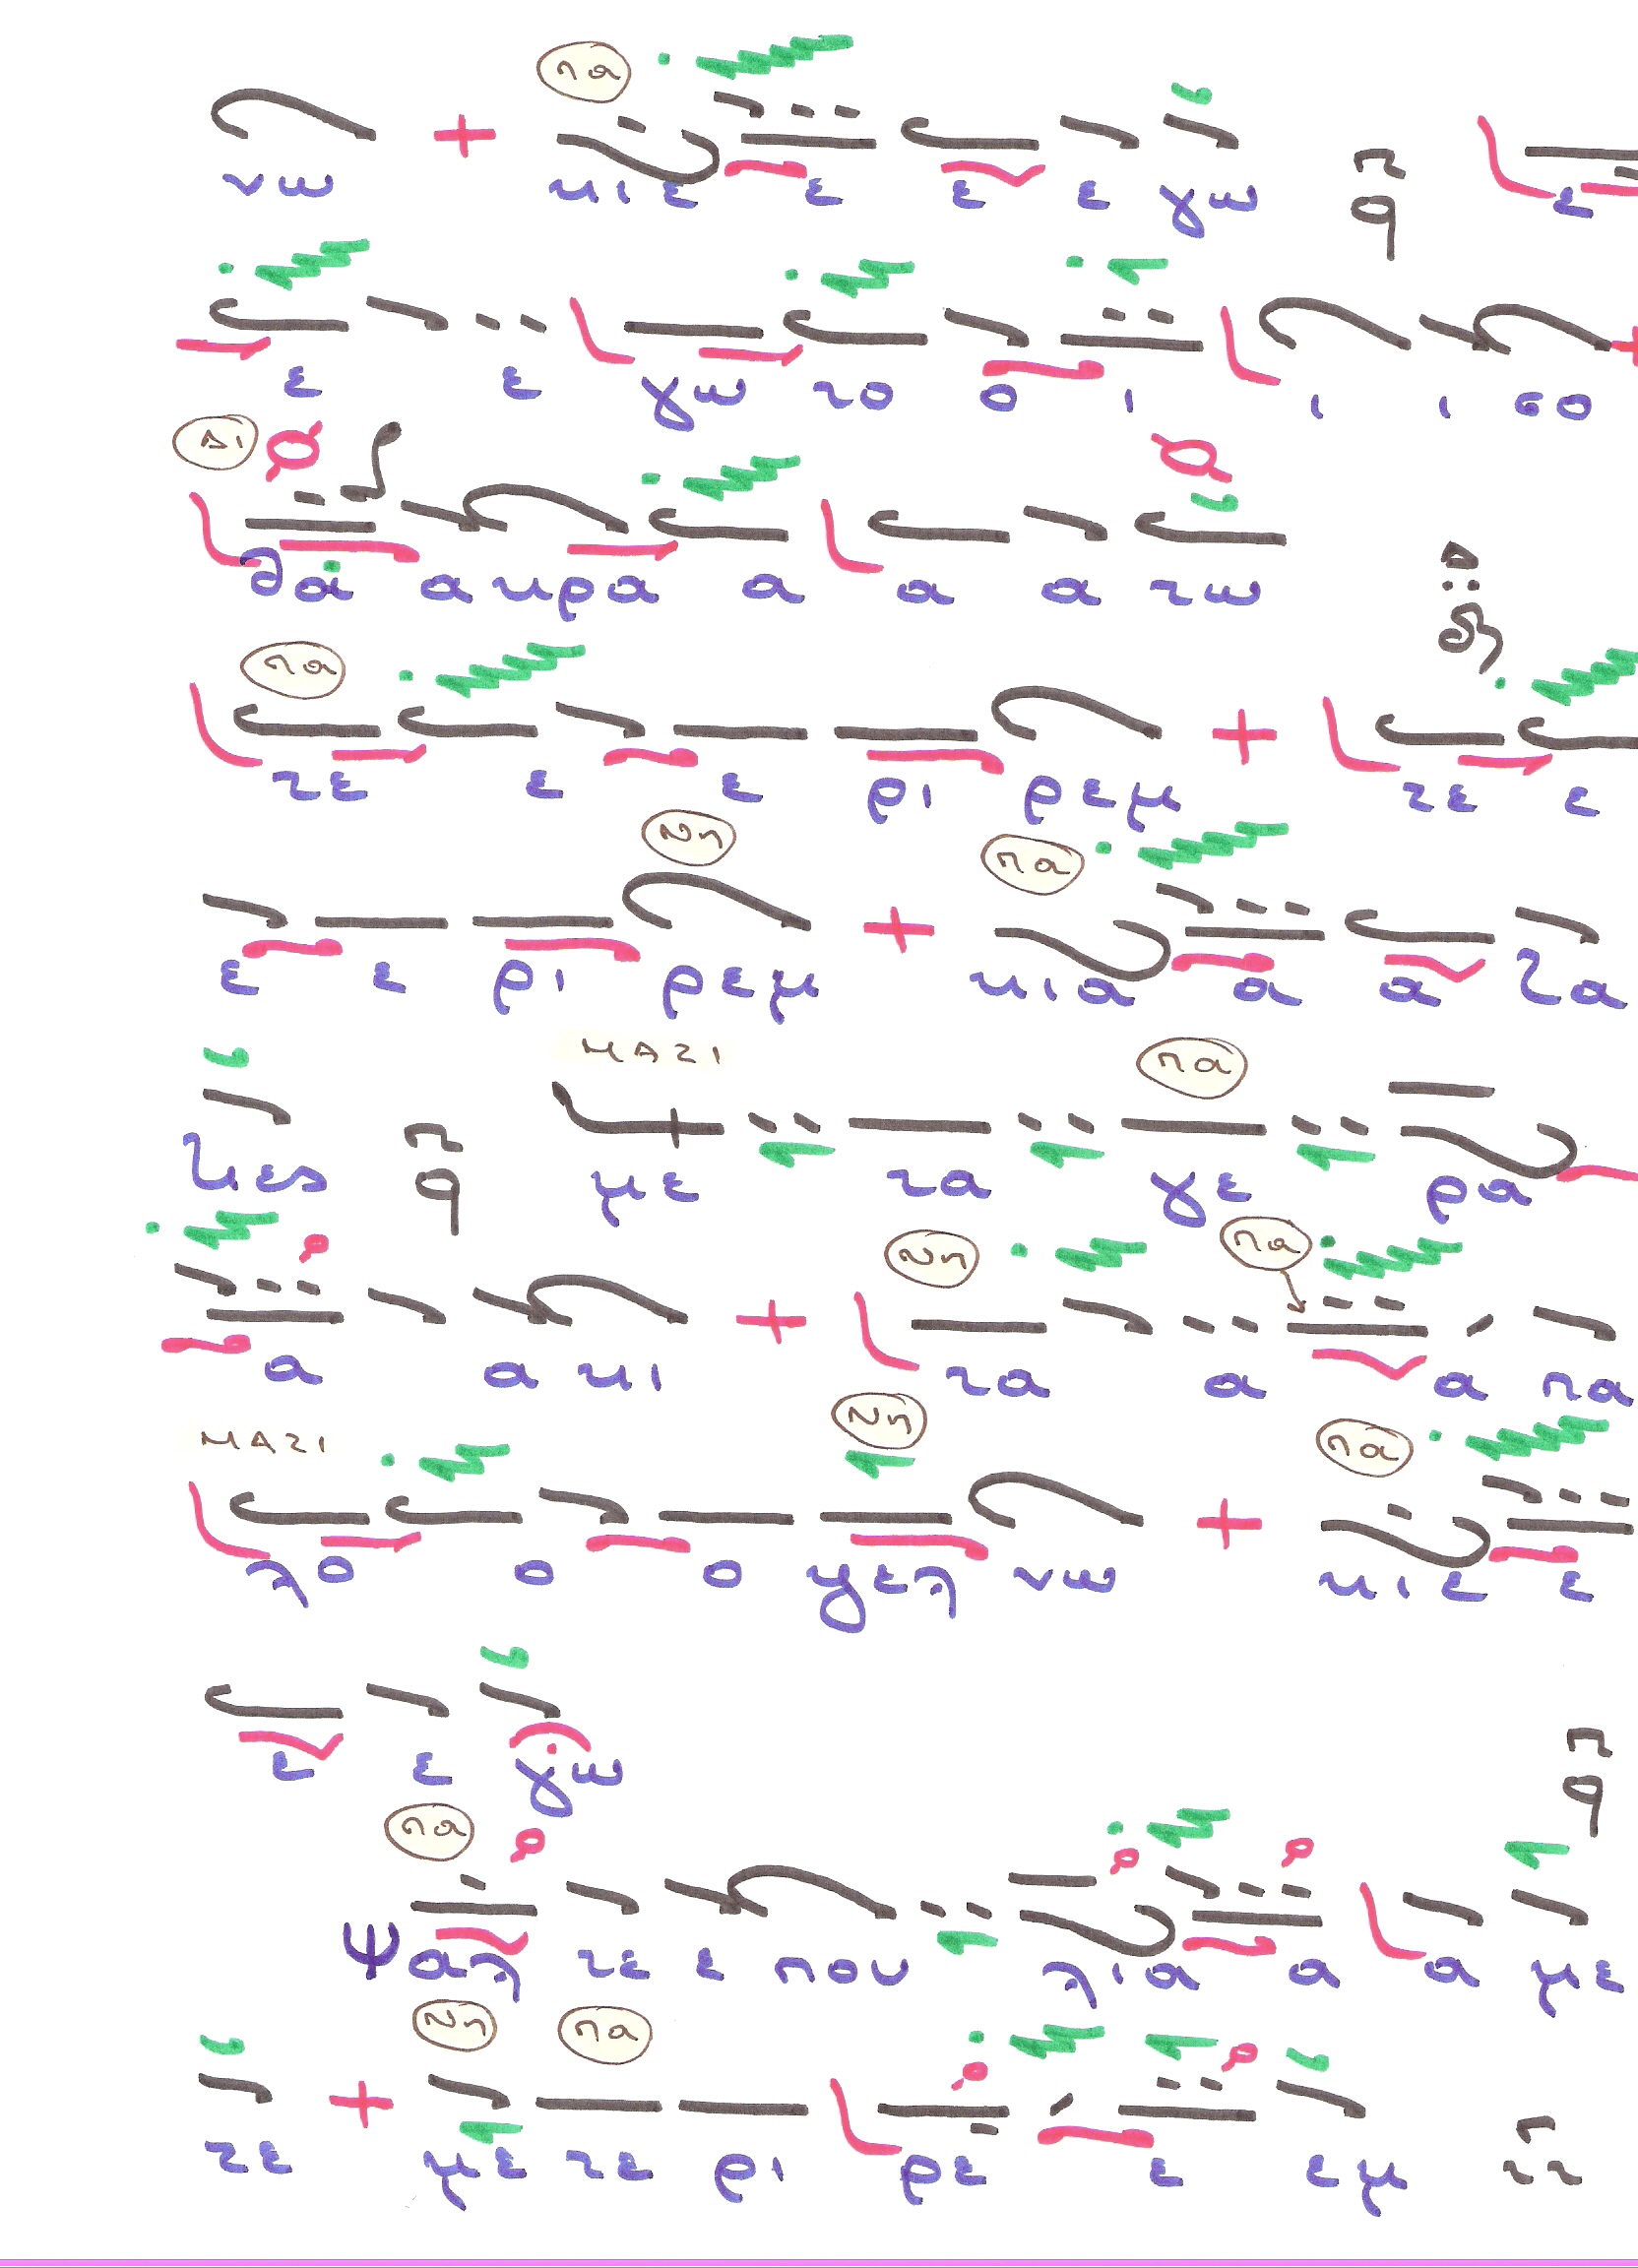 πα
νω κιε ε ε ε γω π q ε
ε ε γω το ο ι ι ι σο
Δι
δα α κρα α α α τω Δ δι
πα
τε ε ε ρι ρεμ τε ε
Νη πα
ε ε ρι ρεμ κια α α τα
ΜΑΖΙ πα
τιες π q με τα γε ρα
Νη πα
α α κι τα α α πα
ΜΑΖΙ Νη πα
λο ο ο γελ νω κιε ε
ε ε γω π q
πα
ψαλ τε ε που λια α α με
Νη πα
τε με τε ρι ρε ε εμ